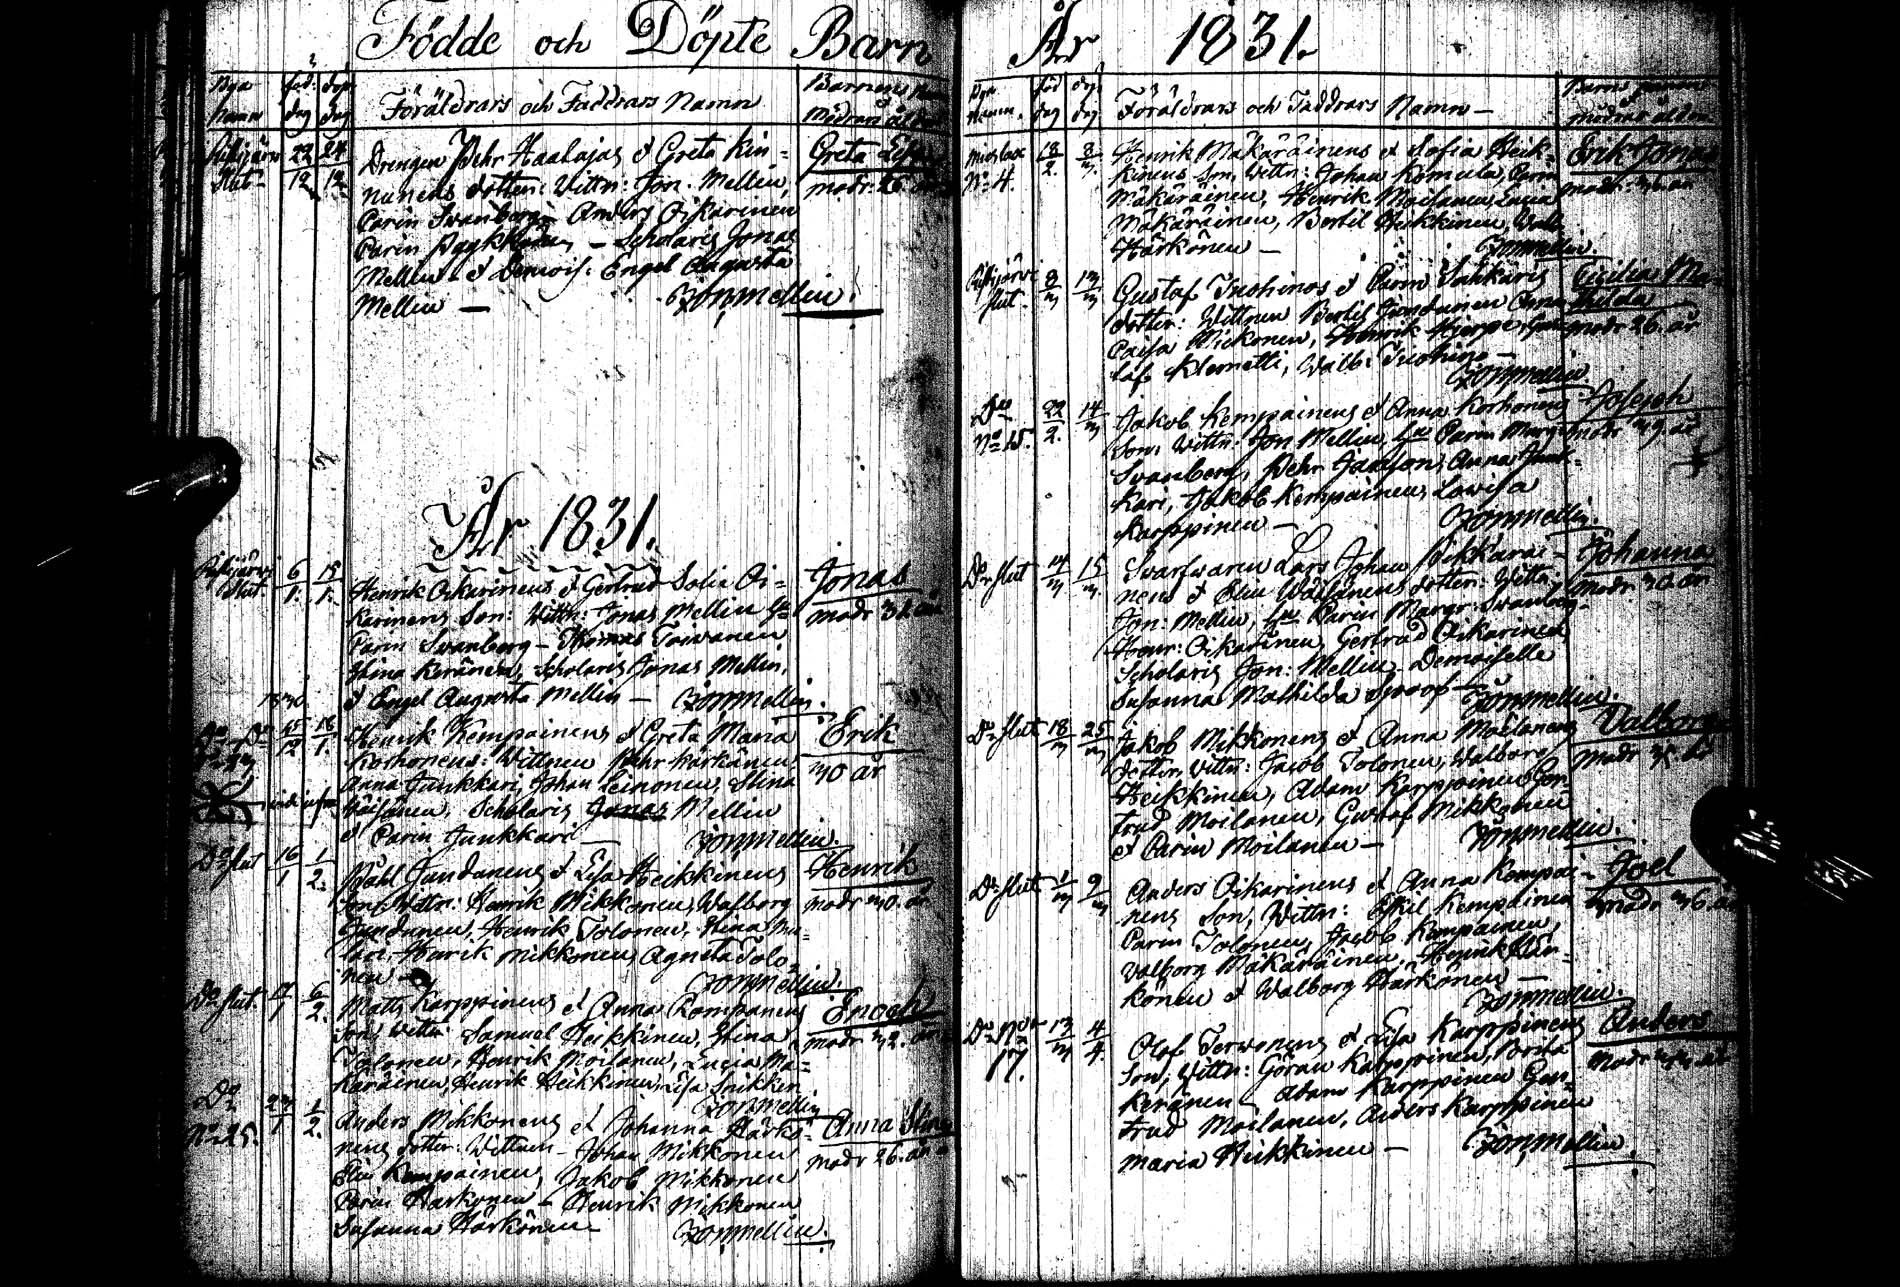 Födde och Döpte Barn
Bya
Namn
född
dag
döpt
dag
Föräldrars och Faddrars Namn
Barnens
Mödrars ålder
Slut
22
12
24
12
Drengen Pehr Haalajas & Greta Kin=
nunens dotter: Wittn: Jon: Mellin,
Carin Svanberg – Anders Oikarinen
Carin – Scholaris Jonas
Mellin & Demois: Engel Augusta
Mellin —
Jon Mellin.
Greta
modr: 26. år
År 1831.
Slut
6
1.
15
1.
Henrik Oikarinens & Gertrud Sofia Oi=
karinens Son: Wittn: Jonas Mellin
Carin Svanberg – Thomas Toivanen
Stina Keränen, Scholaris Jonas Mellin,
& Engel Augusta Mellin —
Jon Mellin.
Jonas
modr 31. år
1830
15
12
16
1.
Henrik Kempainens & Greta Maria
Korhonens: Wittnen Pehr Kärkäinen,
Anna Junkkari, Johan Leinonen, Stina
Väisänen, Scholaris Jonas Mellin
& Carin Junkkari —
Jon Mellin.
Erik
30 år
Do Slut
16
1
1
2.
Påhl Jundunens & Lisa Heikkinens
Son, Wittn: Henrik Mikkonen, Walborg
Jundunen, Henrik Tolonen, Stina Mu=
lari, Henrik Mikkonen, Agneta Tolo=
nen —
Jon Mellin.
Henrik
modr 30. år
Do Slut.
1
6
2.
Matts Karppinens & Anna Kompanens
Son, Wittn: Samuel Heikkinen, Stina
Tolonen, Henrik Moilanen, Lucia Mä=
käräinen, Henrik Heikkinen, Lisa
Jon Mellin
Enoch
modr 32. år
Do
No 25.
23
1
1
2.
Anders Mikkonens & Johanna Härkö=
nens dotter: Wittnen – Johan Mikkonen
Elin Kempainen, Jakob Mikkonen
Carin Härkönen – Henrik Mikkonen
Susanna Härkönen –
Jon Mellin.
Anna Stina
modr 26. år
År 1831.
Bya
Namn.
född
dag
döpt
dag
Föräldrars och Faddrars Namn –
Barns
mödrars ålder
No 4.
18
2.
8
3
Henrik Mäkäräinens & Sofia Heik=
kinens Son, Wittn: Johan Komula, Carin
Mäkäräinen, Henrik Moilanen, Lucia
Mäkäräinen, Bertil Heikkinen, Walb:
Härkönen —
Jon Mellin.
Erik Jonas
modr: 36. år
Slut.
8
3
13
3
Gustaf Tuohinos & Carin Sahkaris
dotter: Wittnen Bertil Jundunen Anna
Caisa Mickonen, Henrik Hjerpe, Gus
taf Klemetti, Walb: Tuohino —
Jon Mellin
Cecilia Ma=
thilda
modr 26. år
Do
No 15.
22
2.
14
3
Jakob Kempainens & Anna Korhonens
Son, Wittn: Jon Mellin, Carin Margr.
Svanberg, Pehr Anna Junk=
kari, Jakob Kempainen, Lowisa
Karppinen —
Jon Mellin.
Joseph
modr 39. år
Do Slut
14
3
15
3
Svarfwaren Lars Johan Pikkarai=
nens & Elin Väisänens dotter: Wittn:
Jon: Mellin, Carin Margr: Svanberg
Henr: Oikarinen, Gertrud Oikarinen
Scholaris Jon: Mellin – Demoiselle
Susanna Mathilda Spoof —
Jon Mellin.
Johanna
modr 30 år
Do Slut
18
3
25
3
Jakob Mikkonens & Anna Moilanens
dotter, Wittn: Jacob Tolonen, Walborg
Heikkinen, Adam Karppinen, Ger
trud Moilanen, Gustaf Mikkonen
& Carin Moilanen —
Jon Mellin.
Valborg
Do Slut
1
3
9
3
Anders Oikarinens & Anna Kempai=
nens Son, Wittn: Eskil Kempainen
Carin Tolonen, Jacob Kempainen,
Valborg Mäkäräinen, Henrik Här=
könen & Walborg Härkönen —
Jon Mellin.
Joel
modr 36. år
Do No
17.
13
3
4
4.
Olof Terwonens & Lisa Karppinens
Son, Wittn: Göran Karppinen, Brita
Keränen – Adam Karppinen Ger=
trud Moilanen, Anders Karppinen
Maria Heikkinen —
Jon Mellin.
Anders
modr 33 år